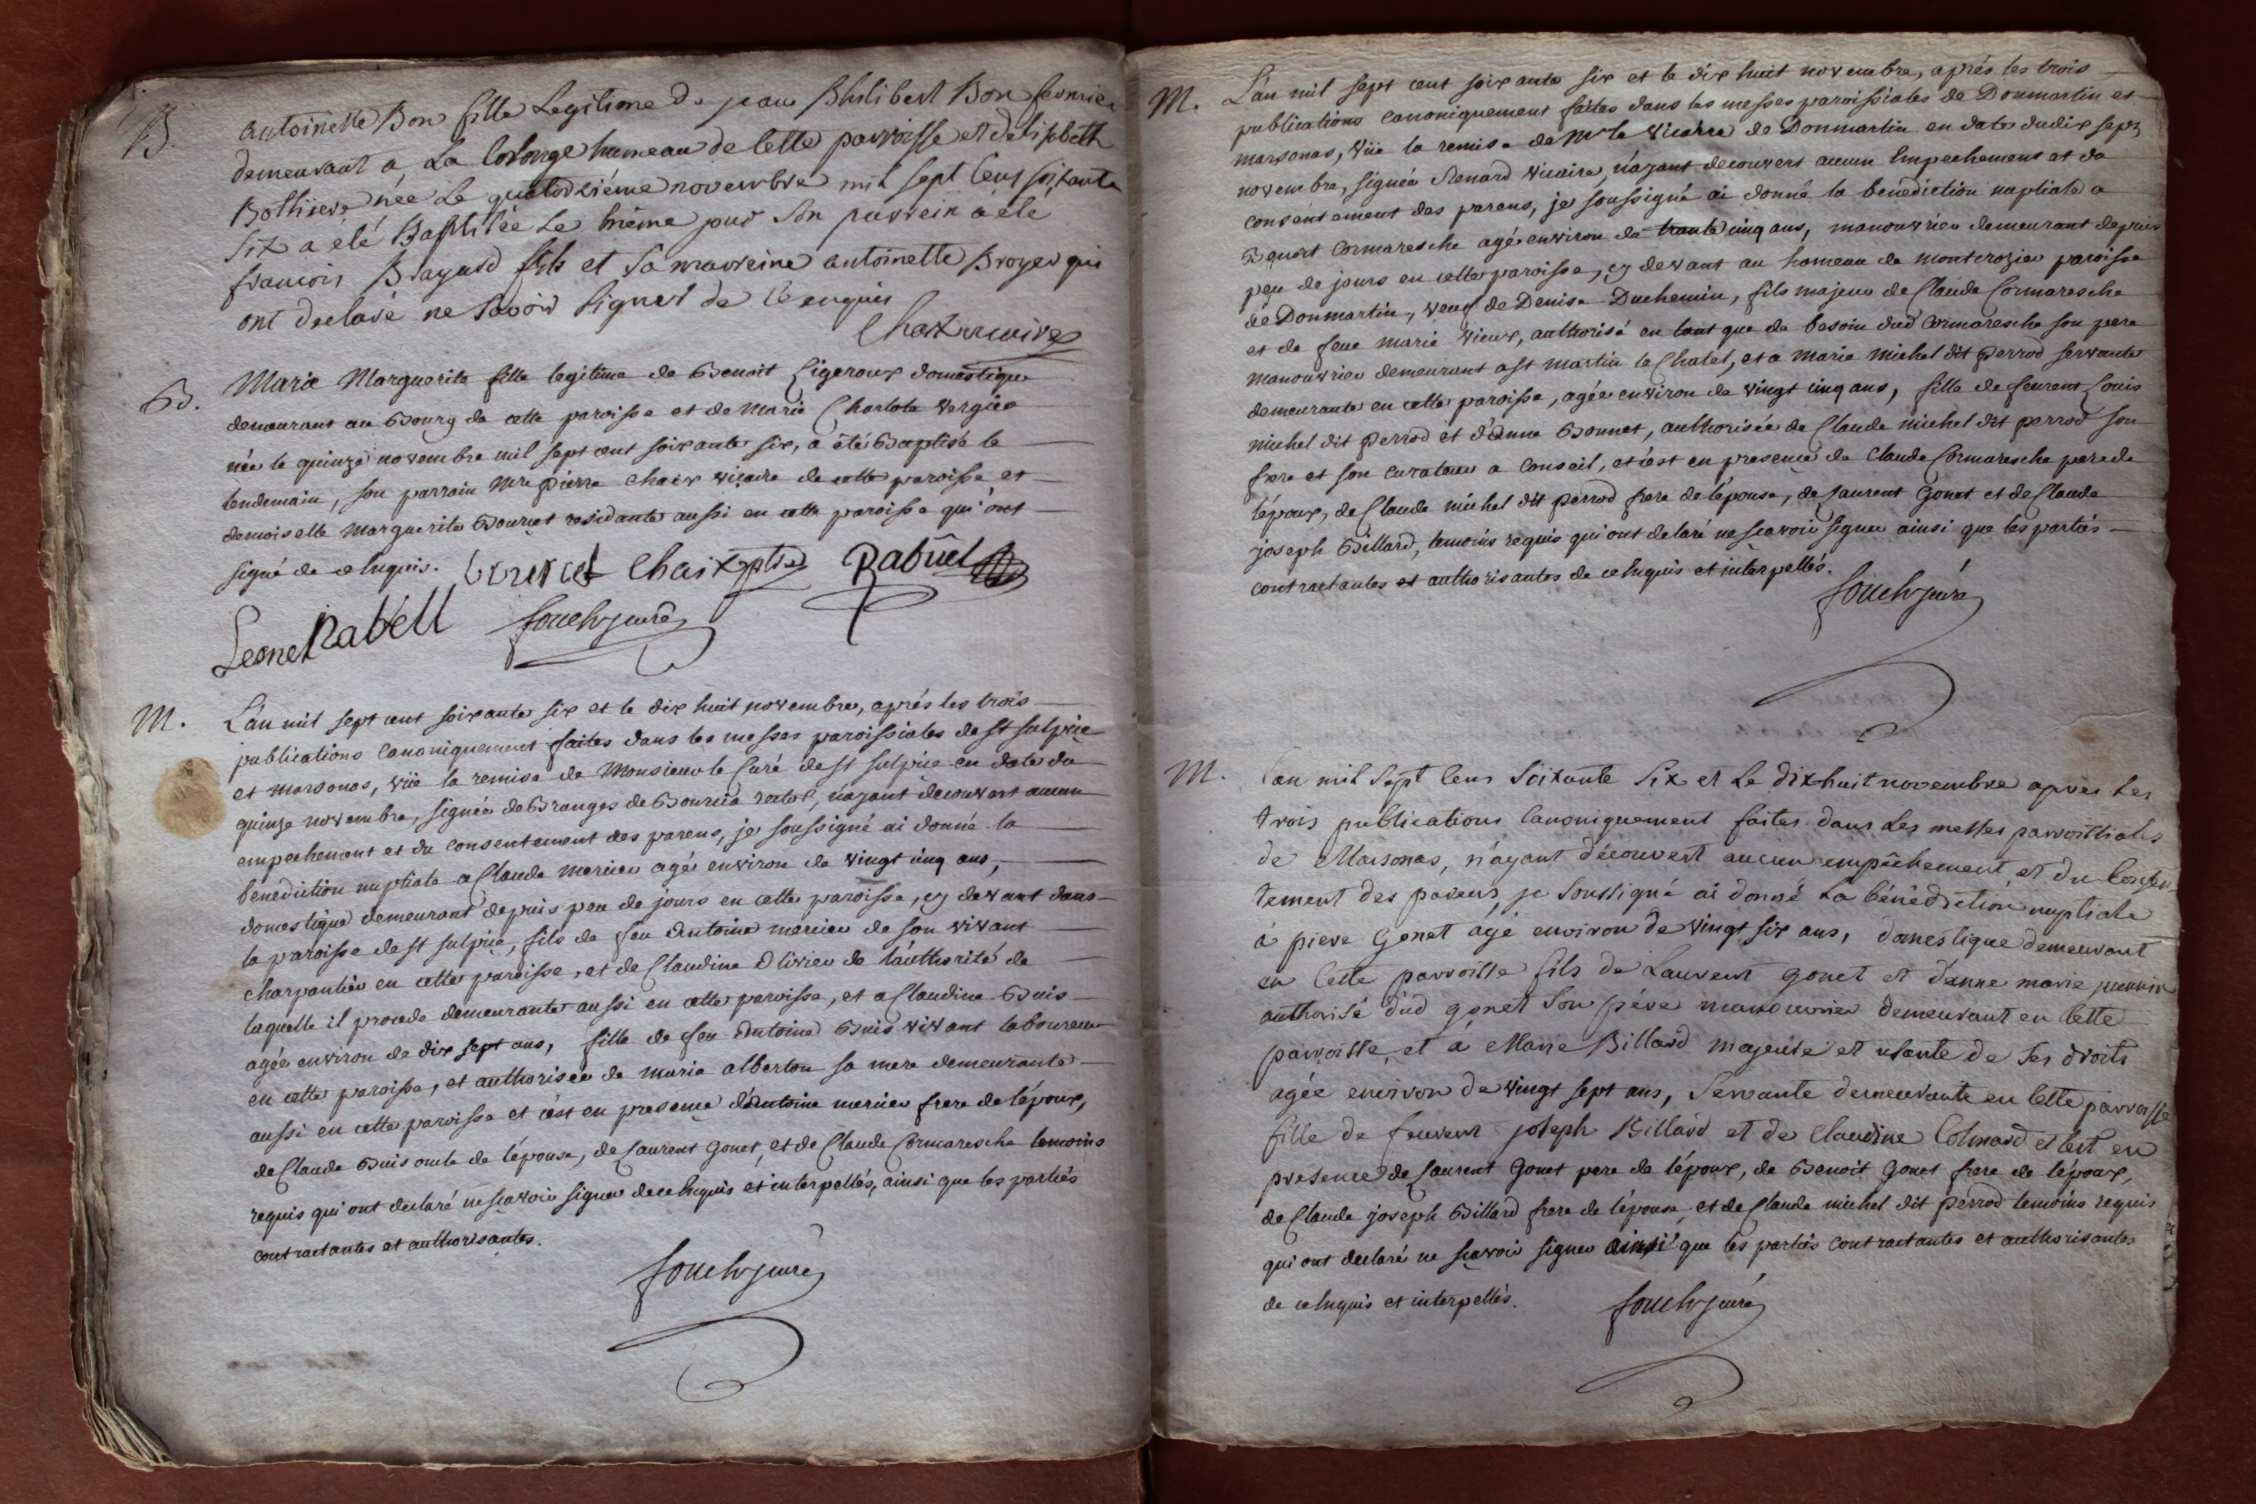 B.
antoinette Bon fille Legitime de jean Philibert Bon fermier
demeurant a La Colonge hameau de Cette parroisse et delisabeth
née Le quatorzième novembre mil sept Cens soixante
six a été Baptisée Le même jour Son parrein a été
francois Brayard fils et Sa marreine antoinette Broyer qui
ont déclaré ne Savoir Signer de Ce enquis
Chaix vicaire
B.
Marie Marguerite fille legitime de Benoit Ligeroux domestique
demeurant au Bourg de cette paroisse et de Marie Charlote Vergier
née le quinze novembre mil sept cent soixante six, a été Baptisé le
lendemain, son parrain Mre pierre Chaix vicaire de cette paroisse et
demoiselle Marguerite Bourcet residante aussi en cette paroisse qui ont
signé de ce Enquis. Chaix ptre Rabuel
Leonel Rabell fouch curé
M.
L'an mil sept cent soixante six et le dix huit novembre, aprés les trois
publications canoniquement faites dans les messes paroissiales de st sulpice
et marsonas, vüe la remise de Monsieur le Curé de st sulpice en date du
quinze novembre, signée de Branges de Bourcia rector, n'ayant decouvert aucun
empechement et du consentement des parens, je soussigné ai donné la
benediction nuptiale a Claude Mercier agé environ de vingt cinq ans,
domestique demeurant depuis peu de jours en cette paroisse, cy devant dans
la paroisse de st sulpice, fils de feu Antoine mercier de son vivant
charpentier en cette paroisse, et de Claudine Olivier de l'authorité de
laquelle il procede demeurante aussi en cette paroisse, et a Claudine Buis
agée environ de dix sept ans, fille de feu Antoine Buis vivant laboureur
en cette paroisse, et authorisée de marie alberton sa mere demeurante
aussi en cette paroisse et c'est en presence d'Antoine mercier frere de l'époux,
de Claude Buis oncle de l'épouse, de Laurent Gonet, et de Claude Cormaresche temoins
requis qui ont declaré ne scavoir signer de ce Enquis et interpellés, ainsi que les partiés
contractantes et authorisantes.
fouch curé
M.
L'an mil sept cent soixante six et le dix huit novembre, aprés les trois
publications canoniquement faites dans les messes paroissiales de Donmartin et
marsonas, vüe la remise de Mr le Vicaire de Donmartin en date du dix sept
novembre, signée Renard vicaire, n'ayant decouvert aucun Empechement et du
consentement des parens, je soussigné ai donné la benediction nuptiale a
Benoit Cormaresche agé environ de trante cinq ans, manouvrier demeurant depuis
peu de jours en cette paroisse, cy devant au hameau de montcrozier paroisse
de Donmartin, veuf de Denise Duchemin, fils majeur de Claude Cormaresche
et de feue marie vieux, authorisé en tant que de besoin dud Cormaresche son pere
manouvrier demeurant a st martin le Chatel, et a Marie michel dit perrod servante
demeurante en cette paroisse, agée environ de vingt cinq ans, fille de feurent Louis
michel dit perrod et d'Anne Bonnet, authorisée de Claude michel dit perrod son
frere et son curateur a conseil, et c'est en presence de Claude Cormaresche pere de
l'époux, de Claude michel dit perrod frere de l'épouse, de Laurent Gonet et de Claude
joseph Billard, temoins requis qui ont delaré ne scavoir signer ainsi que les partiés
contractantes et authorisantes de ce Enquis et interpellés.
fouch curé
M.
L'an mil Sept Cens Soixante Six et Le dixhuit novembre aprés Les
trois publications Canoniquement faites dans Les messes parroissiales
de Marsonas, n'ayant découvert aucun empêchement et du Consen
tement des parens, je Soussigné ai donné La bénédiction nuptiale
à pierre Gonet agé environ de vingt six ans, domestique demeurant
en Cette parroisse fils de Laurent gonet et d'anne marie
authorisé dud gonet Son pére manouvrier demeurant en Cette
parroisse, et à Marie Billard majeure et usante de Ses droits
agée environ de vingt sept ans, Servante demeurante en Cette parroisse
fille de feurent joseph Billard et de Claudine Colmard et c'est en
présence de Laurent Gonet pere de l'époux, de Benoit Gonet frere de l'époux,
de Claude joseph Billard frere de l'épouse, et de Claude michel dit perrod temoins requis
qui ont declaré ne scavoir signer ainsi que les partiés contractantes et authorisantes
de ce Enquis et interpellés. fouch curé